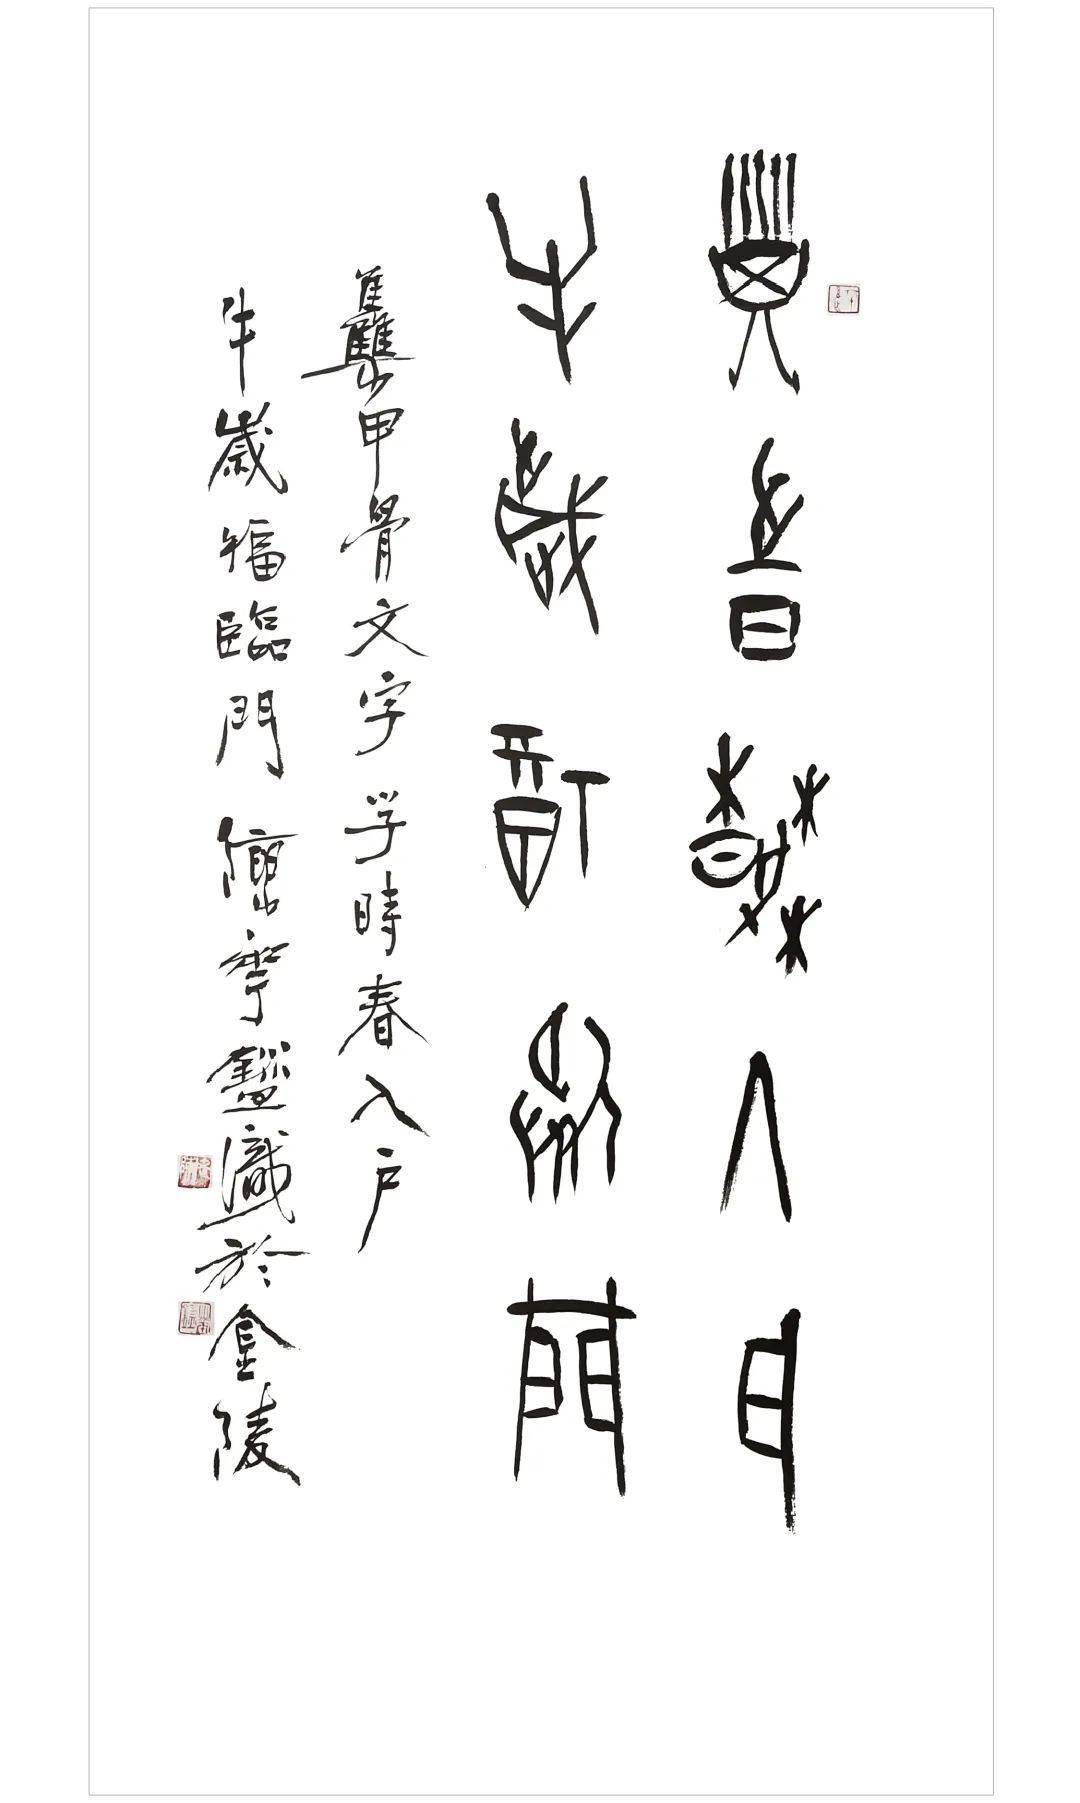 子時春入戶
牛歲福臨門
雧甲骨文字子時春入戶
牛歲福臨門於金陵